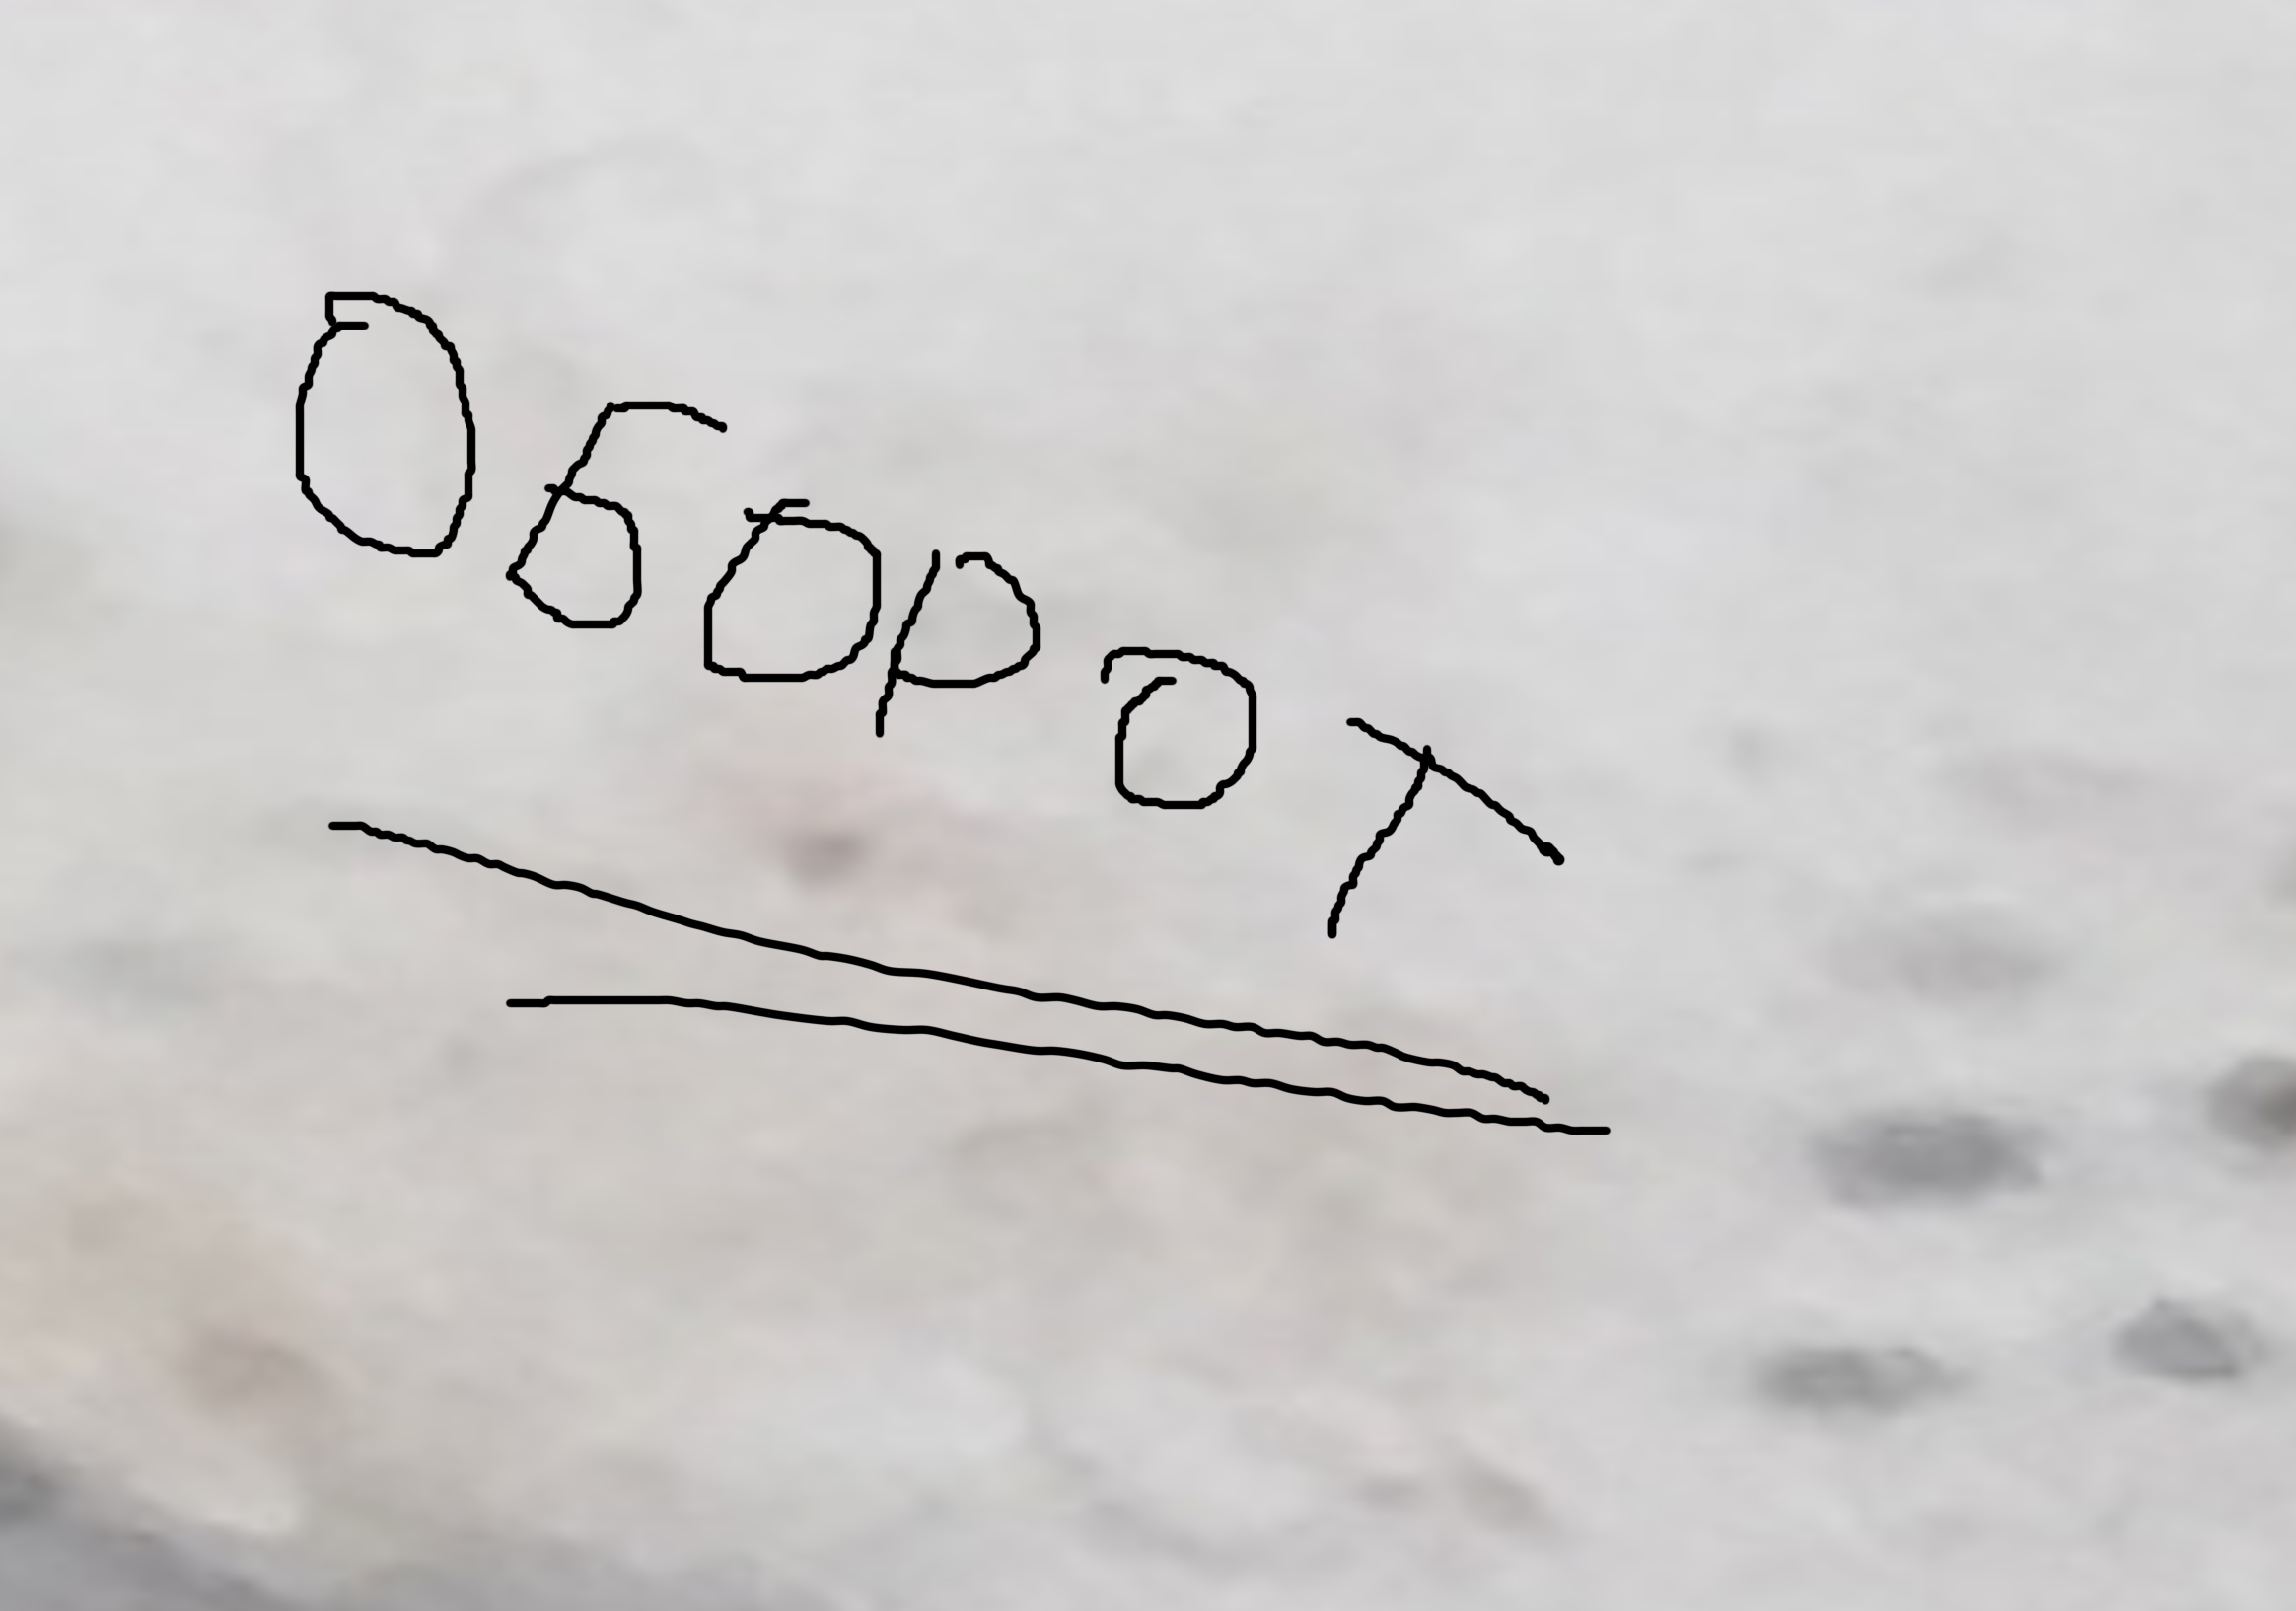 Оборот